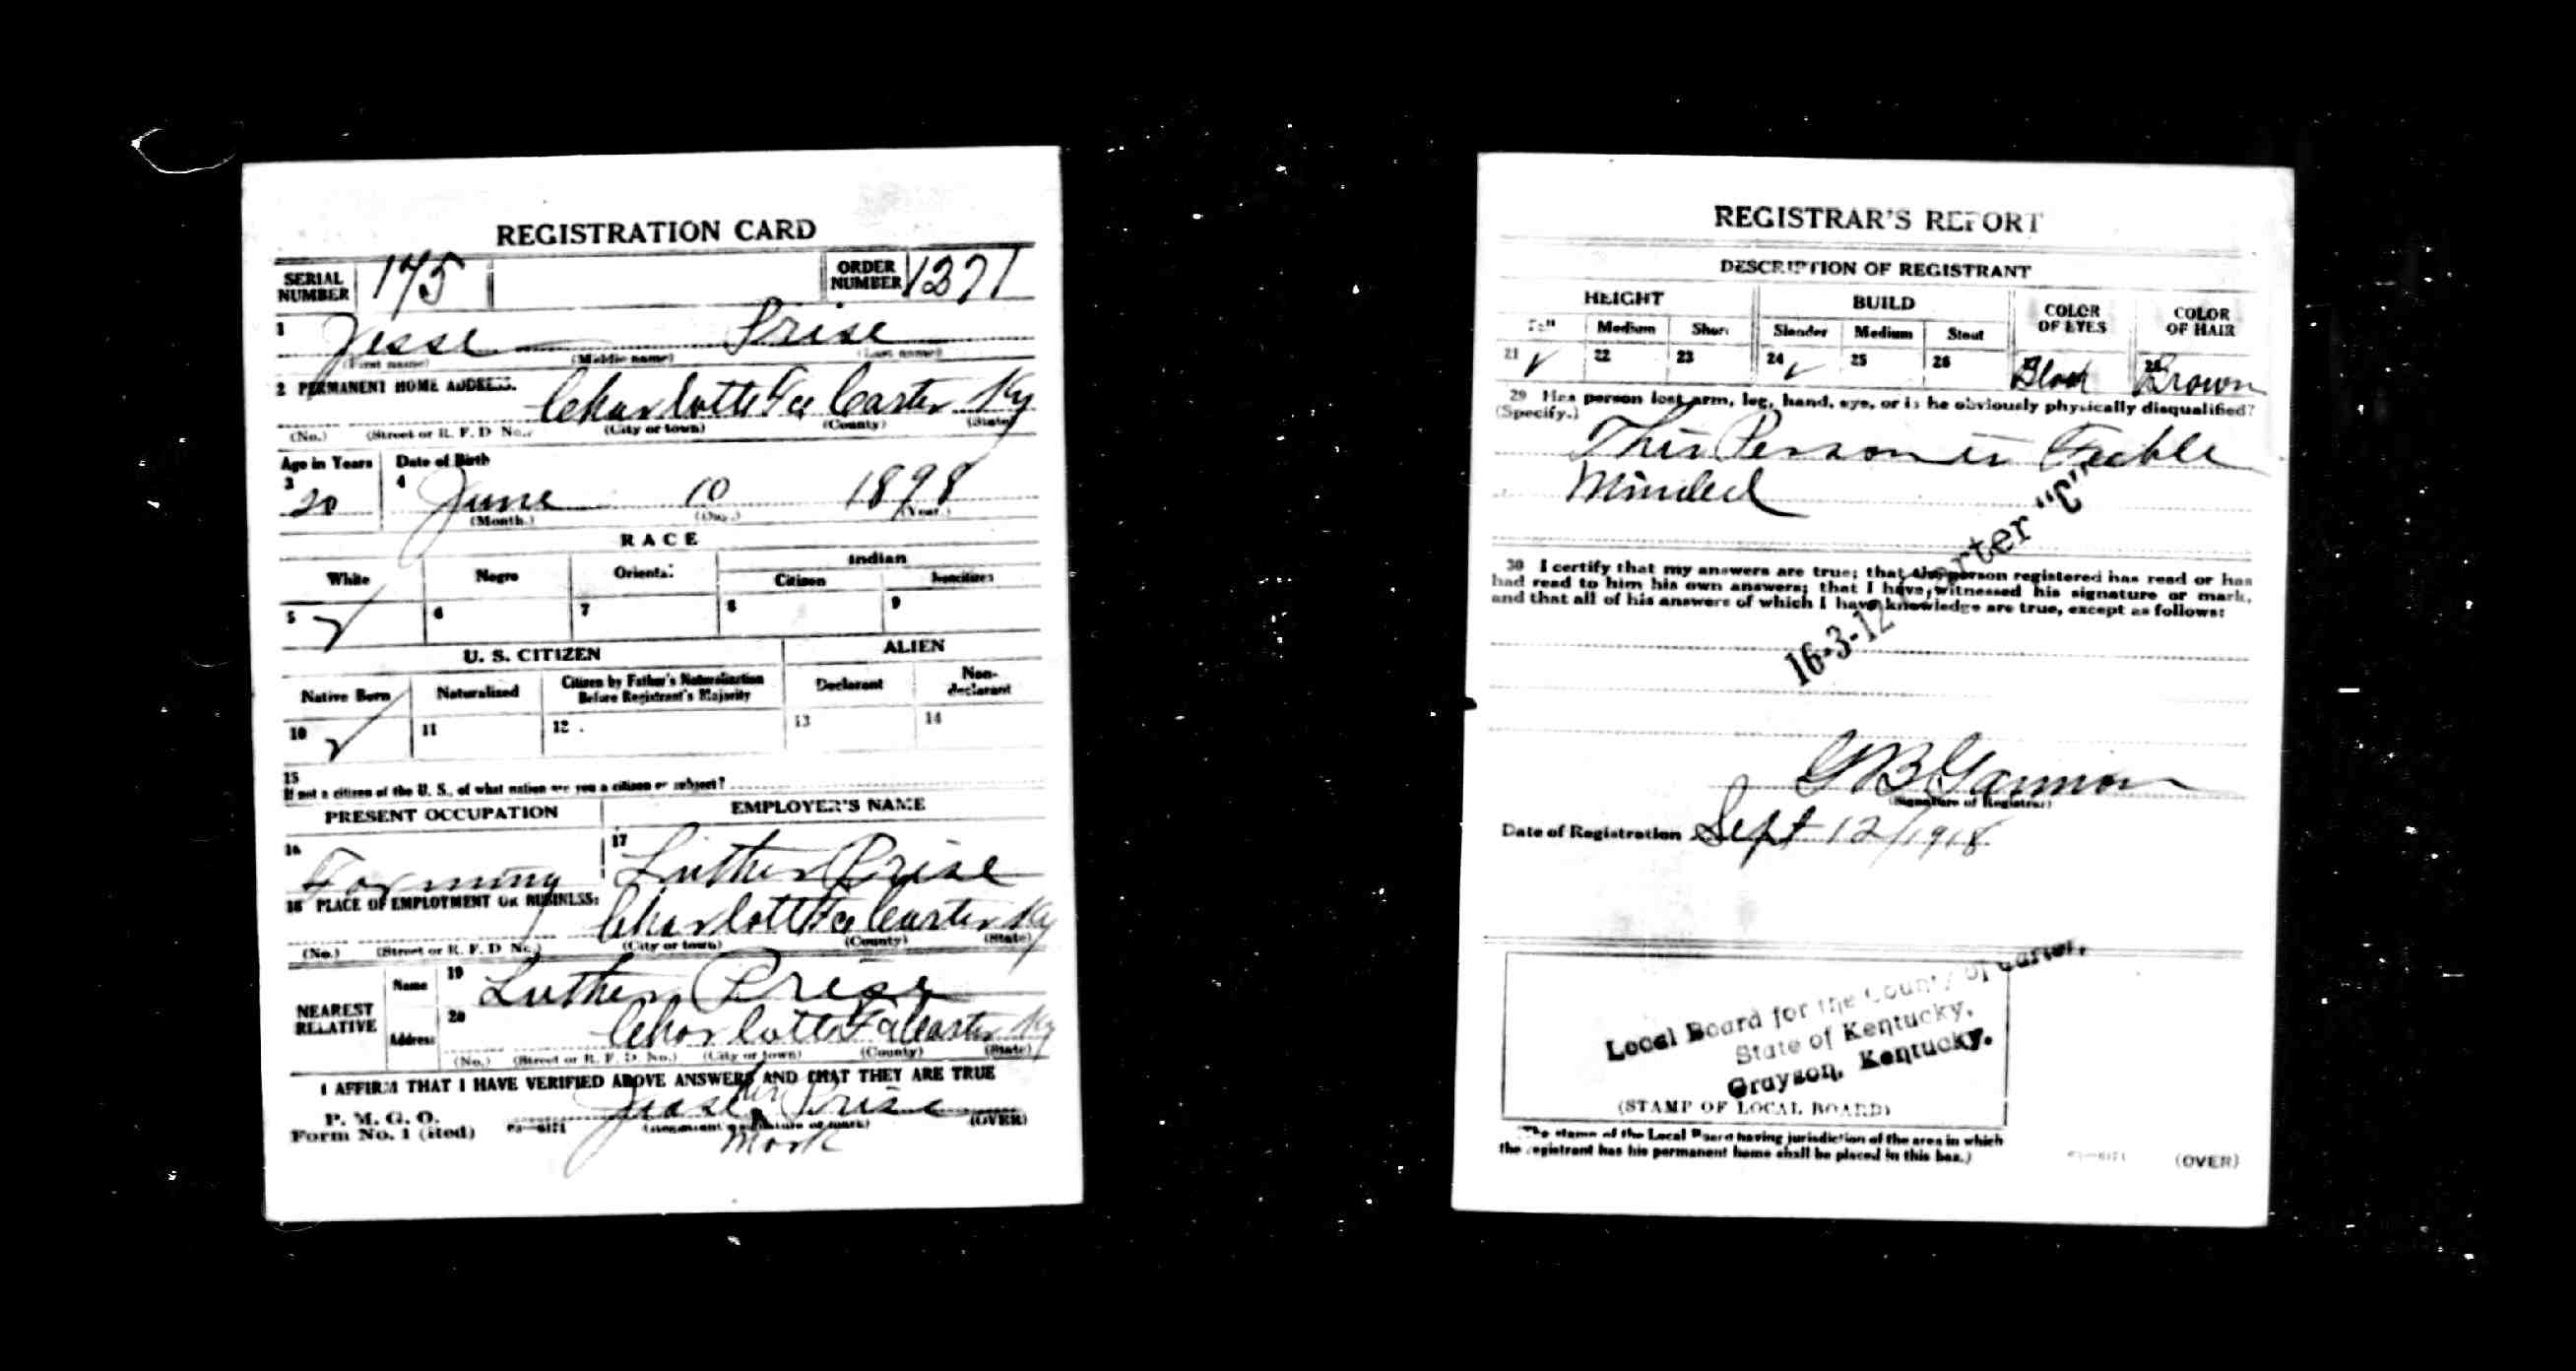 REGISTRATION CARD
SERIAL NUMBER 175 ORDER NUMBER 1371
1 Jesse Prise
(First name) (Middle name) (Last name)
2 PERMANENT HOME ADDRESS.
Charlotte Fce Carter Ky
(No.) (Street or R. F. D. No.) (City or town) (County) (State)
Age in Years Date of Birth
3 20 4 June 10 1898
(Month.) (Day.) (Year.)
RACE
White Negro Oriental Indian
Citizen Noncitizen
5 ✓ 6 7 8 9
U. S. CITIZEN ALIEN
Native Born Naturalized Citizen by Father's Naturalization Before Registrant's Majority Declarant Non-declarant
10 ✓ 11 12 . 13 14
15
If not a citizen of the U. S., of what nation are you a citizen or subject?
PRESENT OCCUPATION EMPLOYER'S NAME
16 Farming 17 Luther Prise
18 PLACE OF EMPLOYMENT OR BUSINESS:
Charlotte Carter Ky
(No.) (Street or R. F. D. No.) (City or town) (County) (State)
NEAREST RELATIVE
Name 19 Luther Prise
Address 20 Charlotte Carter Ky
(No.) (Street or R. F. D. No.) (City or town) (County) (State)
I AFFIRM THAT I HAVE VERIFIED ABOVE ANSWERS AND THAT THEY ARE TRUE
P. M. G. O.
Form No. 1 (Red)
Jesse his Prise
mark
(Registrant's signature or mark) (OVER)
REGISTRAR'S REPORT
DESCRIPTION OF REGISTRANT
HEIGHT BUILD COLOR OF EYES COLOR OF HAIR
Tall Medium Short Slender Medium Stout
21 ✓ 22 23 24 ✓ 25 26 Black 28 Brown
29 Has person lost arm, leg, hand, eye, or is he obviously physically disqualified?
(Specify.)
This Person is Feeble
Minded
30 I certify that my answers are true; that the person registered has read or has
had read to him his own answers; that I have witnessed his signature or mark,
and that all of his answers of which I have knowledge are true, except as follows:
16-3-12 Carter "C"
G B Gammon
(Signature of Registrar)
Date of Registration Sept 12/1918
Local Board for the County of Carter,
State of Kentucky,
Grayson, Kentucky.
(STAMP OF LOCAL BOARD)
(The stamp of the Local Board having jurisdiction of the area in which
the registrant has his permanent home shall be placed in this box.)
(OVER)